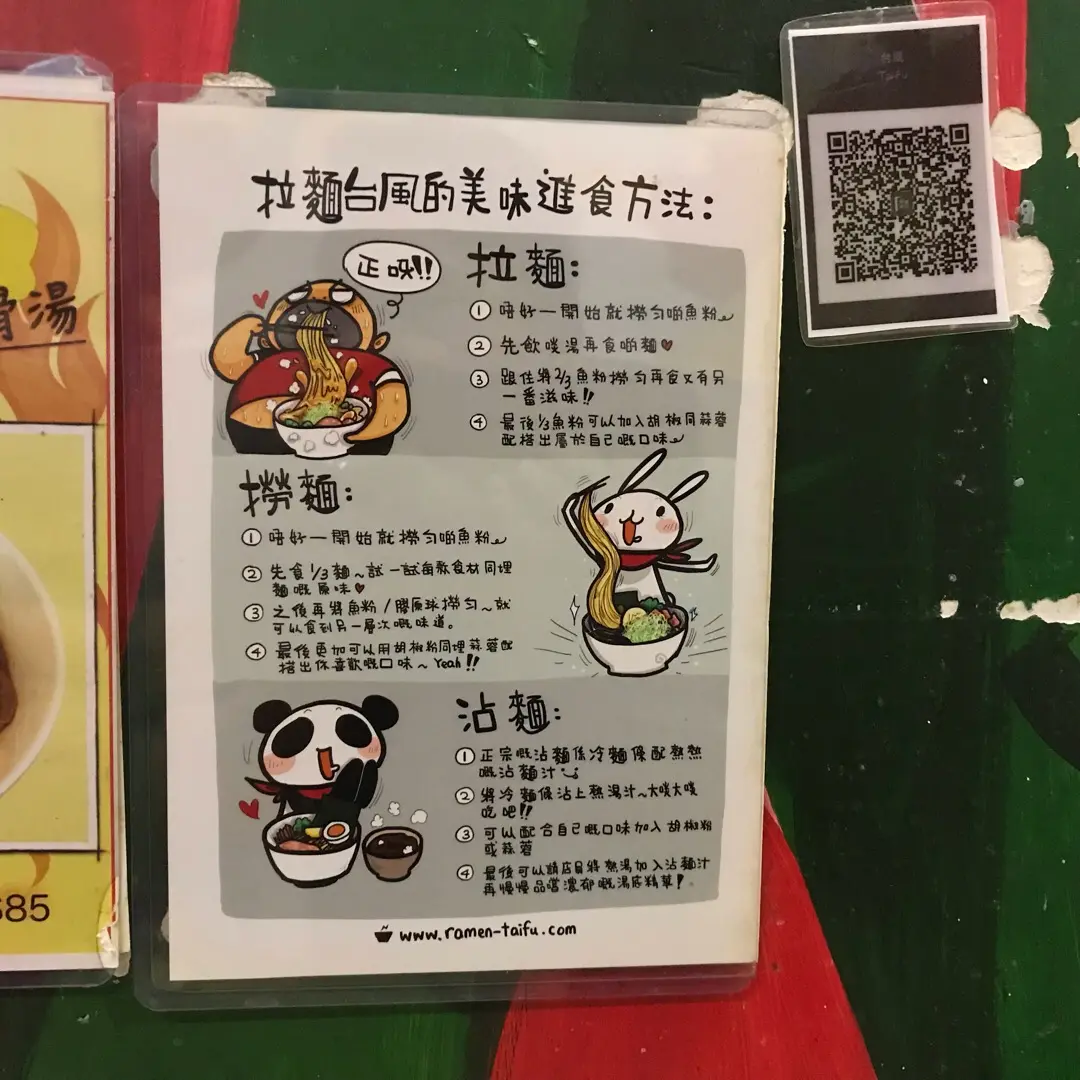 拉麵台風的美味進食方法:
正呀!!
拉麵:
① 唔好一開始就撈勻啲魚粉
② 先飲啖湯再食啲麵♥
③ 跟住將2/3魚粉撈勻再食又有另
一番滋味!!
④ 最後1/3魚粉可以加入胡椒同蒜蓉
配搭出屬於自己嘅口味
撈麵:
① 唔好一開始就撈勻啲魚粉
② 先食1/3麵~試一試每款食材同埋
麵嘅原味♥
③ 之後再將魚粉/膠原球撈勻~就
可以食到另一層次嘅味道。
④ 最後更加可以用胡椒粉同埋蒜蓉配
搭出你喜歡嘅口味~ Yeah!!
沾麵:
① 正宗嘅沾麵係冷麵條配熱熱
嘅沾麵汁
② 將冷麵條沾上熱湯汁~大啖大啖
吃吧!!
③ 可以配合自己嘅口味加入胡椒粉
或蒜蓉
④ 最後可以請店員將熱湯加入沾麵汁
再慢慢品嚐濃郁嘅湯底精華!
www.ramen-taifu.com
骨湯
685
台風
Taifu